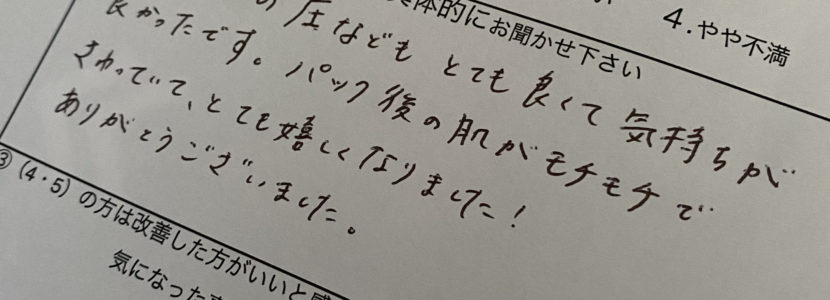 4.やや不満
体的にお聞かせ下さい
圧なども とても良くて気持ちが
良かったです。パック後の肌がモチモチで
さわっていて、とても嬉しくなりました!
ありがとうございました。
③(4・5)の方は改善した方がいいと感
気になった